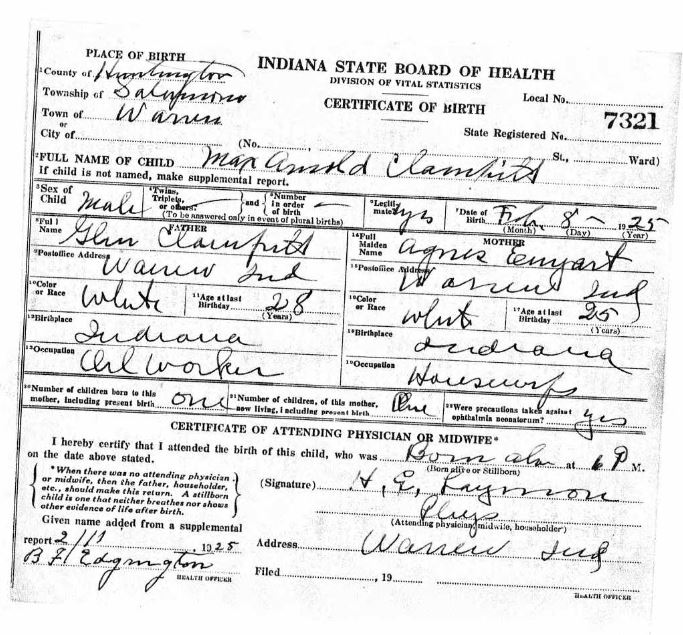 PLACE OF BIRTH
INDIANA STATE BOARD OF HEALTH
DIVISION OF VITAL STATISTICS
CERTIFICATE OF BIRTH
Local No.
State Registered No. 7321
1 County of Huntington
Township of Salamono
Town of Warren
or
City of (No. , St., Ward)
2 FULL NAME OF CHILD Max Arnold Clampitt
If child is not named, make supplemental report.
3 Sex of Child Male
4 Twins, Triplets, or others? and Number in order of birth
(To be answered only in event of plural births)
6 Legitimate? yes
7 Date of Birth Feb. 8 - 1925
(Month) (Day) (Year)
FATHER
8 Full Name Glen Clampitt
9 Postoffice Address Warren Ind
10 Color or Race White
11 Age at last Birthday 28
(Years)
12 Birthplace Indiana
13 Occupation Oil Worker
MOTHER
14 Full Maiden Name Agnes Emyart
15 Postoffice Address Warren Ind
16 Color or Race White
17 Age at last Birthday 25
(Years)
18 Birthplace Indiana
19 Occupation Housewife
20 Number of children born to this mother, including present birth one
21 Number of children, of this mother, now living, including present birth One
22 Were precautions taken against ophthalmia neonatorum? yes
CERTIFICATE OF ATTENDING PHYSICIAN OR MIDWIFE*
I hereby certify that I attended the birth of this child, who was Born alive at 6 P M.
on the date above stated.
(Born alive or Stillborn)
* When there was no attending physician or midwife, then the father, householder, etc., should make this return. A stillborn child is one that neither breathes nor shows other evidence of life after birth.
(Signature) H. E. Laymon
Phys
(Attending physician, midwife, householder)
Given name added from a supplemental
report 2/11, 1925
B F Edgington
HEALTH OFFICER
Address Warren Ind
Filed , 19
HEALTH OFFICER